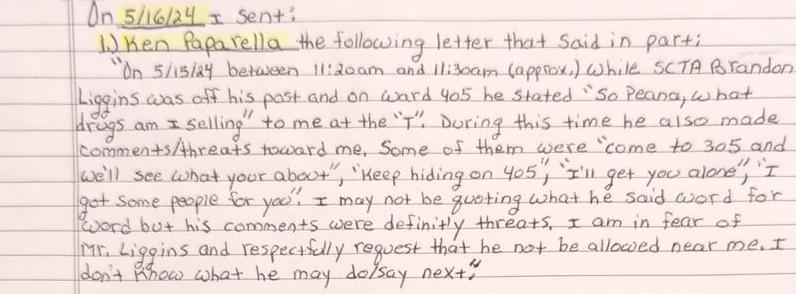 On 5/16/24 I sent:
1.) Ken Paparella the following letter that said in part:
"On 5/15/24 between 11:20am and 11:30am (approx.) while SCTA Brandon
Liggins was off his post and on ward 405 he stated "So Peana, what
drugs am I selling" to me at the "T". During this time he also made
comments/threats toward me. Some of them were "come to 305 and
we'll see what your about", "Keep hiding on 405", "I'll get you alone", "I
got some people for you". I may not be quoting what he said word for
word but his comments were definitly threats. I am in fear of
Mr. Liggins and respectfully request that he not be allowed near me. I
don't know what he may do/say next."